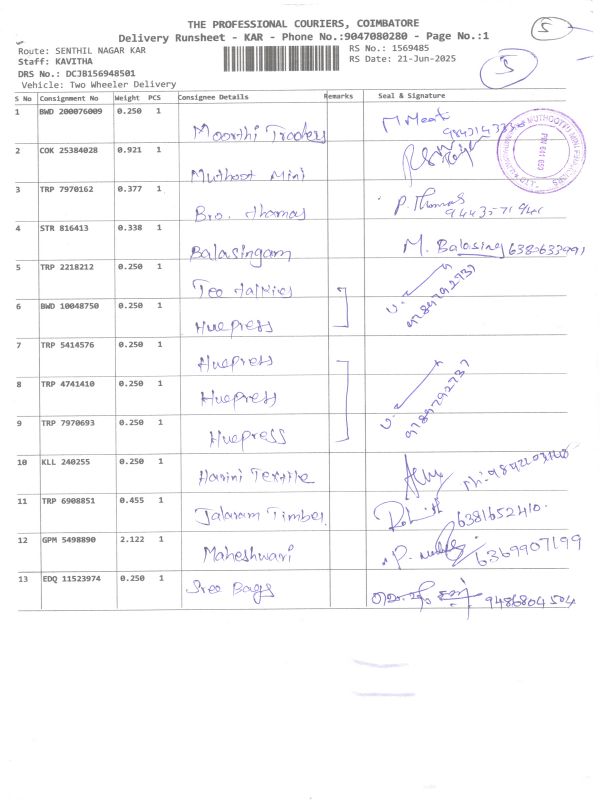 THE PROFESSIONAL COURIERS, COIMBATORE
Delivery Runsheet - KAR - Phone No.:9047080280 - Page No.:1
5
Route: SENTHIL NAGAR KAR
RS No.: 1569485
Staff: KAVITHA
RS Date: 21-Jun-2025
DRS No.: DCJB156948501
Vehicle: Two Wheeler Delivery
S No Consignment No Weight PCS Consignee Details Remarks Seal & Signature
1 BWD 200076009 0.250 1 Moorthi Traders
2 COK 25384028 0.921 1 Muthoot Mini
3 TRP 7970162 0.377 1 Bro. Thomas P. Thomas
4 STR 816413 0.338 1 Balasingam M. Balasing 6380633991
5 TRP 2218212 0.250 1 Teo
6 BWD 10048750 0.250 1 Huepress 9789792737
7 TRP 5414576 0.250 1 Huepress
8 TRP 4741410 0.250 1 Huepress
9 TRP 7970693 0.250 1 Huepress 9789792737
10 KLL 240255 0.250 1 Harini Textile
11 TRP 6908851 0.455 1 Jalaram Timber 6381652410.
12 GPM 5498890 2.122 1 Maheshwari P. 6369907199
13 EDQ 11523974 0.250 1 Sree Bags 9486804504